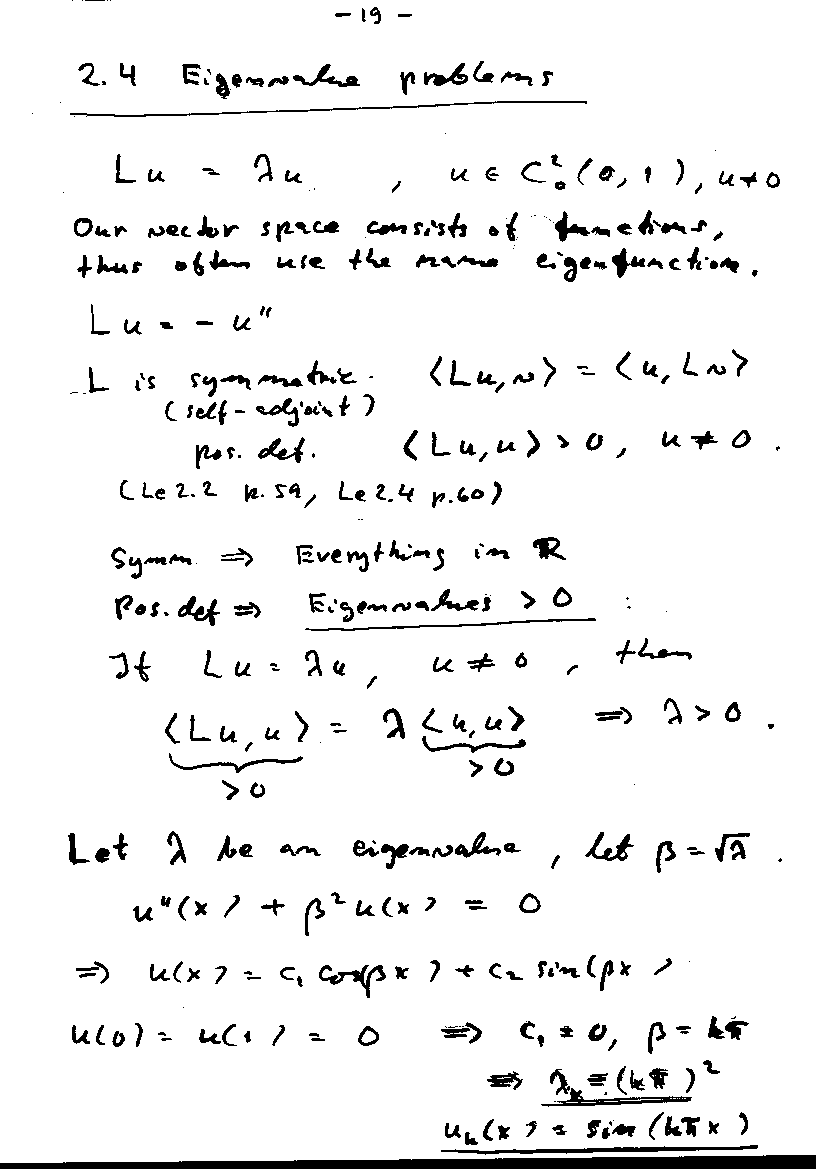 - 19 -
2.4 Eigenvalue problems
Lu = λu , u ∈ C²₀(0,1), u≠0
Our vector space consists of functions,
thus often use the name eigenfunction.
Lu = - u"
L is symmetric. ⟨Lu,v⟩ = ⟨u,Lv⟩
(self-adjoint)
pos. def. ⟨Lu,u⟩ > 0, u ≠ 0 .
(Le 2.2 p.59, Le 2.4 p.60)
Symm. ⇒ Everything in ℝ
Pos. def ⇒ Eigenvalues > 0 :
If Lu = λu, u ≠ 0 , then
⟨Lu,u⟩ = λ⟨u,u⟩ ⇒ λ > 0 .
>0 >0
Let λ be an eigenvalue, let β = √λ .
u"(x) + β²u(x) = 0
⇒ u(x) = c₁ cos(βx) + c₂ sin(βx)
u(0) = u(1) = 0 ⇒ c₁ = 0, β = kπ
⇒ λₖ = (kπ)²
uₖ(x) = sin(kπx)